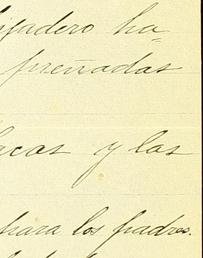 ijadero ha-
preñadas
acas y las
para los padres.